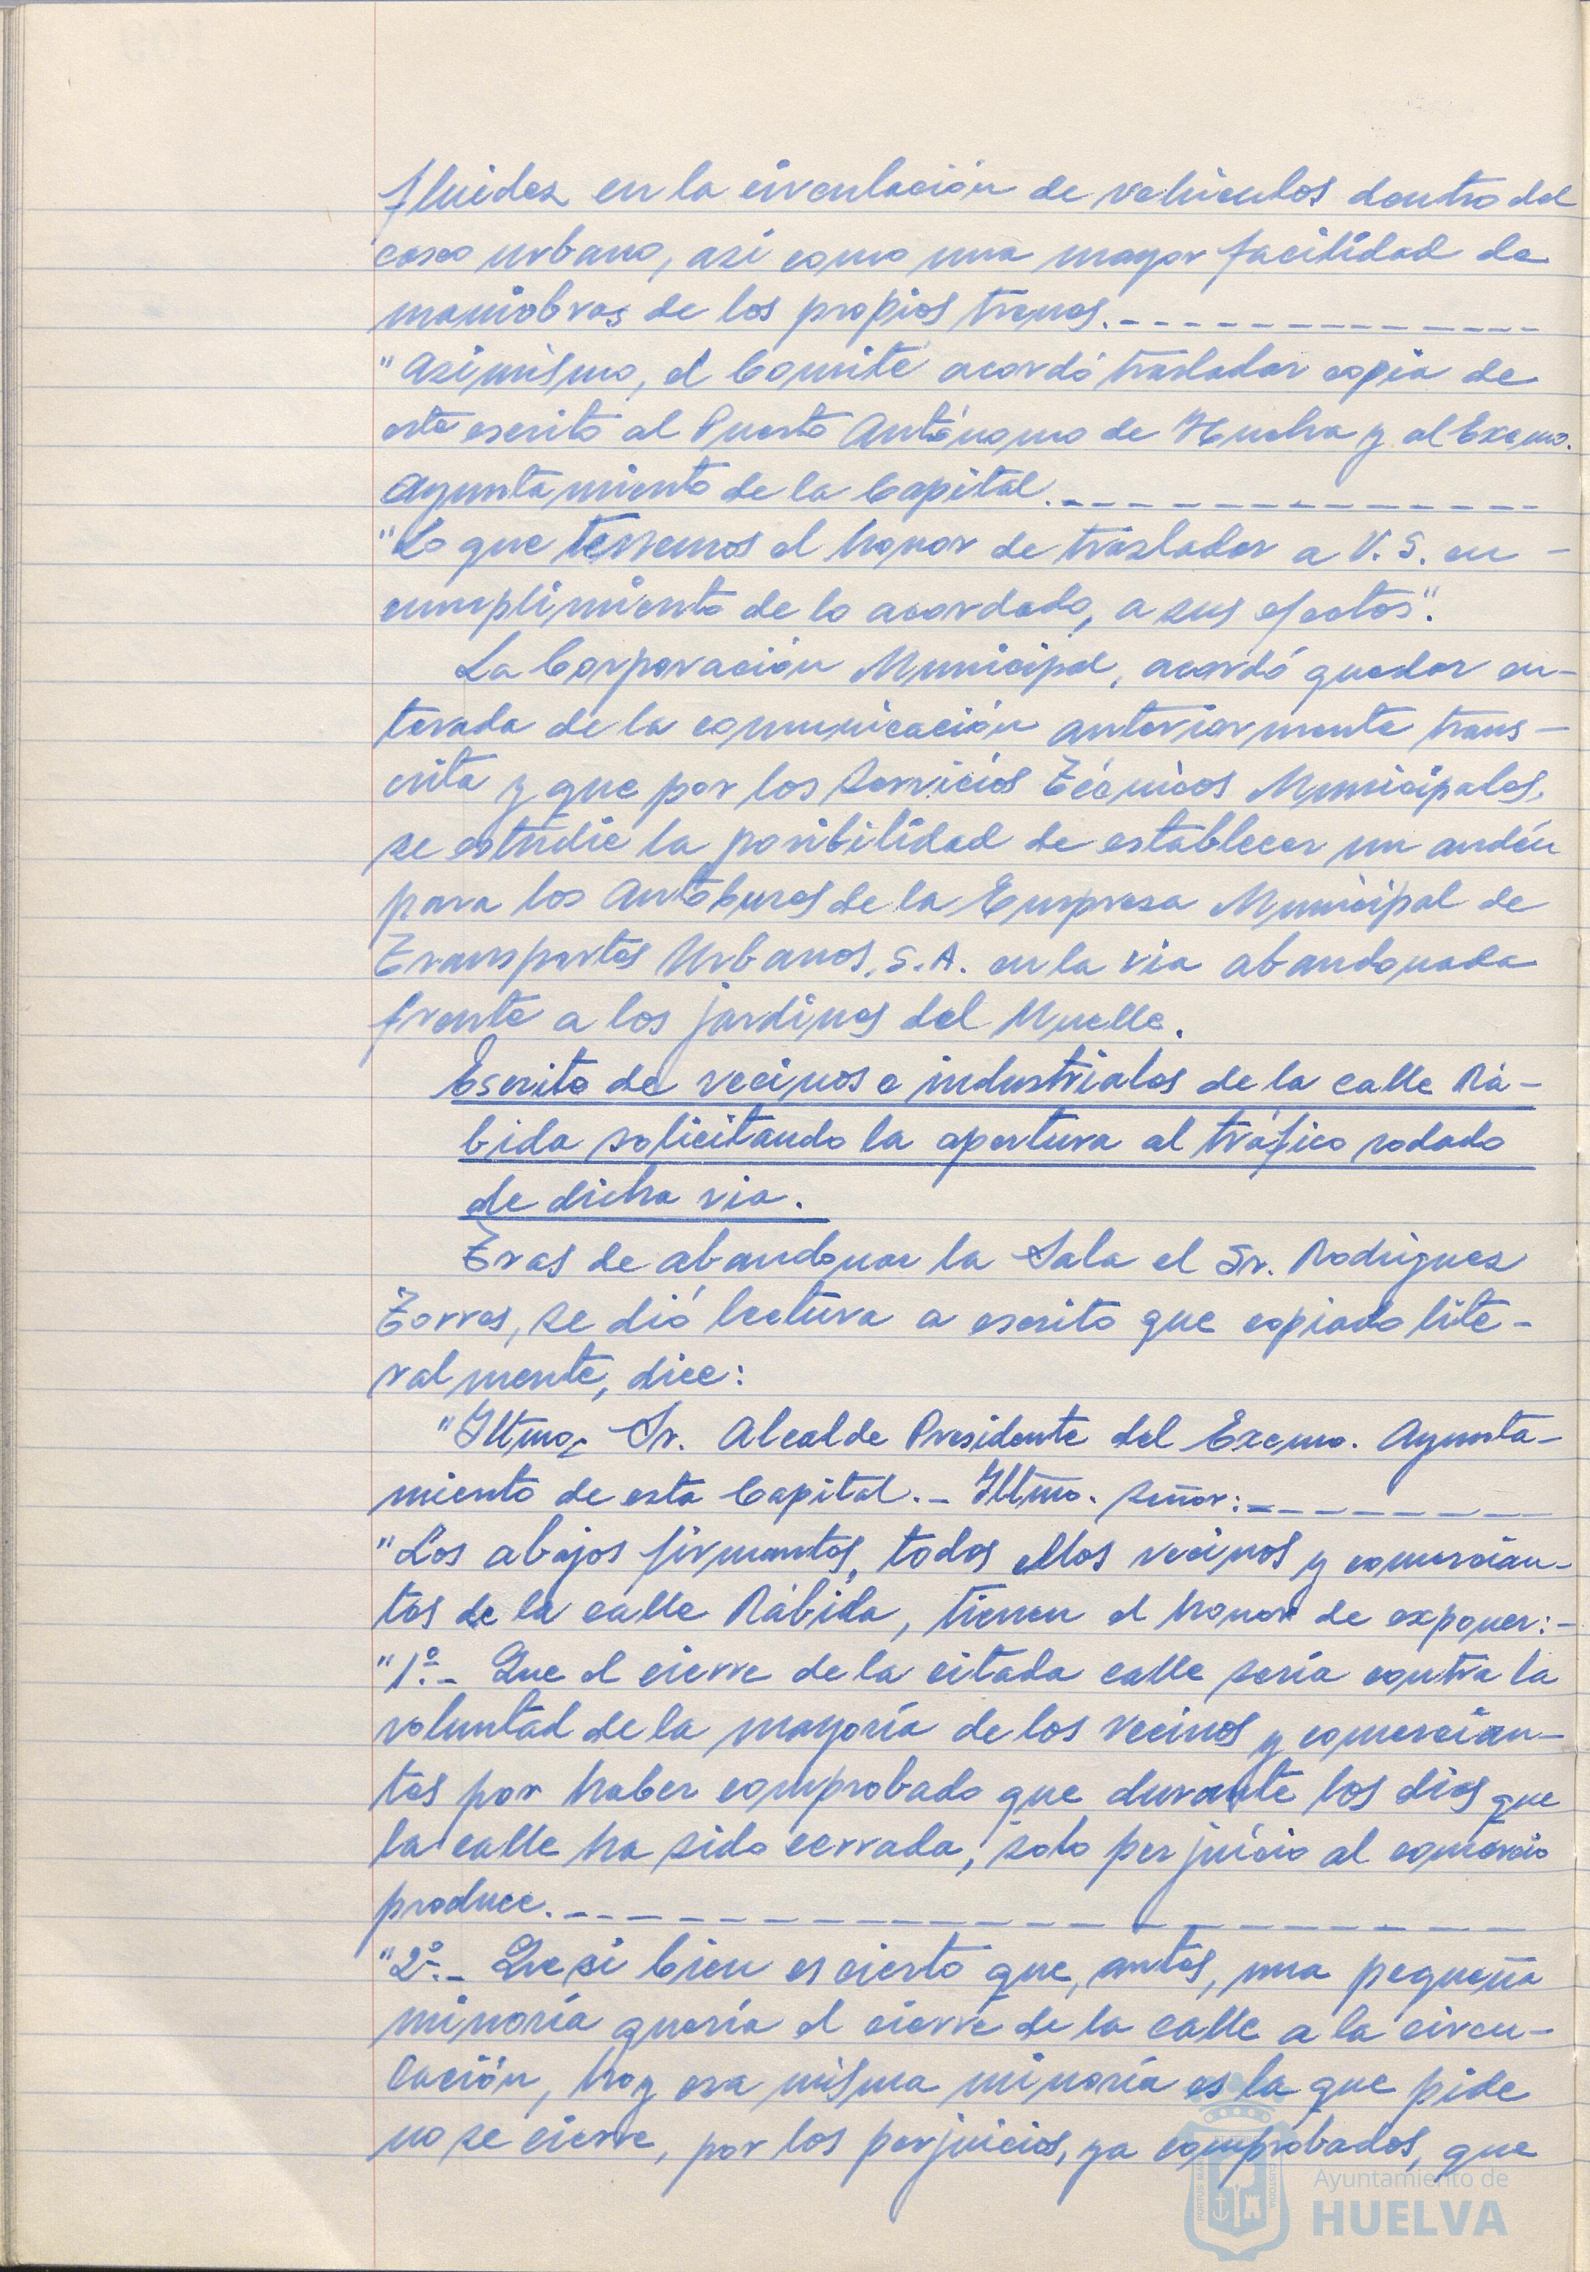 fluidez en la circulación de vehiculos dentro del
casco urbano, asi como una mayor facilidad de
maniobras de los propios trenes.
"Asimismo, el Comité acordó trasladar copia de
este escrito al Puerto Autónomo de Huelva y al Excmo.
Ayuntamiento de la Capital.
"Lo que tenemos el honor de trasladar a V. S. en -
cumplimiento de lo acordado, a sus efectos".
La Corporación Municipal, acordó quedar en-
terada de la comunicación anteriormente trans-
crita y que por los Servicios Técnicos Municipales,
se estudie la posibilidad de establecer un andén
para los Autobuses de la Empresa Municipal de
Transportes Urbanos, S.A. en la via abandonada
frente a los jardines del Muelle.
Escrito de vecinos e industriales de la calle Rá-
bida solicitando la apertura al tráfico rodado
de dicha via.
Tras de abandonar la Sala el Sr. Rodriguez
Torres, se dió lectura a escrito que copiado lite-
ralmente, dice:
"Iltmo. Sr. Alcalde Presidente del Excmo. Ayunta-
miento de esta Capital.- Iltmo. Señor:
"Los abajos firmantes, todos ellos vecinos y comercian-
tes de la calle Rábida, tienen el honor de exponer:-
"1º.- Que el cierre de la citada calle sería contra la
voluntad de la mayoría de los vecinos y comercian-
tes por haber comprobado que durante los dias que
la calle ha sido cerrada, solo perjuicio al comercio
produce.
"2º.- Que si bien es cierto que, antes, una pequeña
minoría quería el cierre de la calle a la circu-
lación, hoy esa misma minoría es la que pide
no se cierre, por los perjuicios, ya comprobados, que
Ayuntamiento de
HUELVA